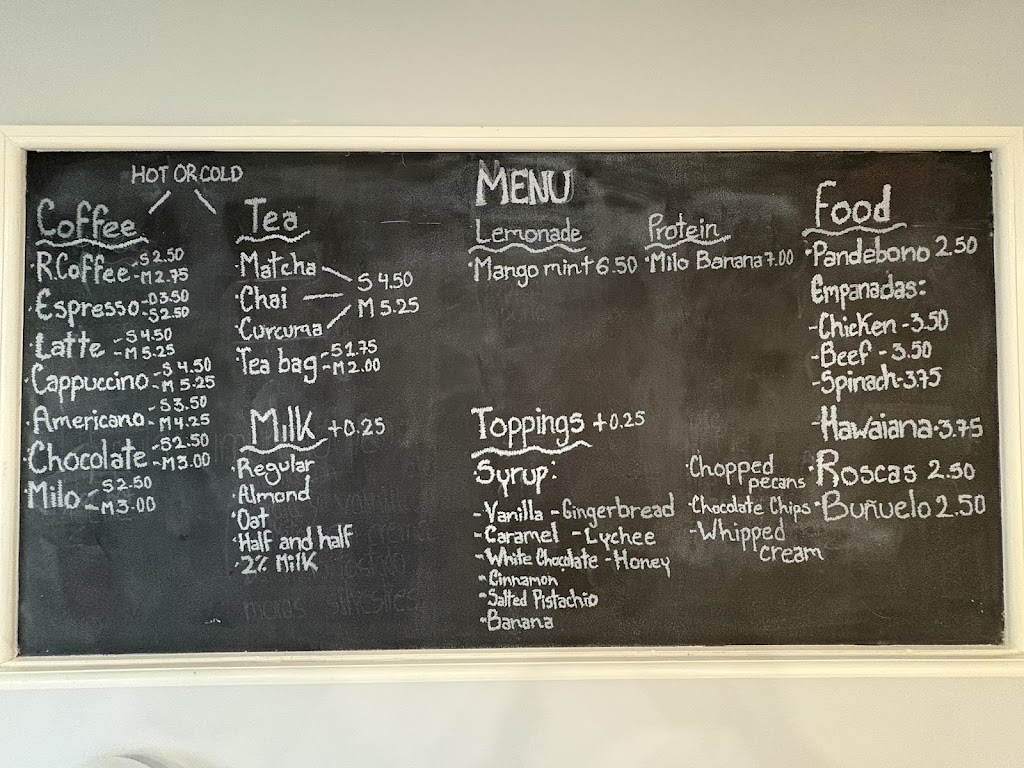 HOT OR COLD
Coffee
R.Coffee -S 2.50
-M 2.75
Espresso -D3.50
-S2.50
Latte -S 4.50
-M 5.25
Cappuccino -S 4.50
-M 5.25
Americano -S3.50
-M4.25
Chocolate -S2.50
-M3.00
Milo -S2.50
-M3.00
Tea
Matcha
Chai
Curcuma
S 4.50
M 5.25
Tea bag -S1.75
-M2.00
Milk +0.25
Regular
Almond
Oat
Half and half
2% Milk
MENU
Lemonade
Mango mint 6.50
Protein
Milo Banana 7.00
Toppings +0.25
Syrup:
-Vanilla -Gingerbread
-Caramel -Lychee
-White Chocolate -Honey
-Cinnamon
-Salted Pistachio
-Banana
Chopped
pecans
Chocolate Chips
-Whipped
cream
Food
Pandebono 2.50
Empanadas:
-Chicken -3.50
-Beef -3.50
-Spinach-3.75
-Hawaiana-3.75
Roscas 2.50
Buñuelo 2.50